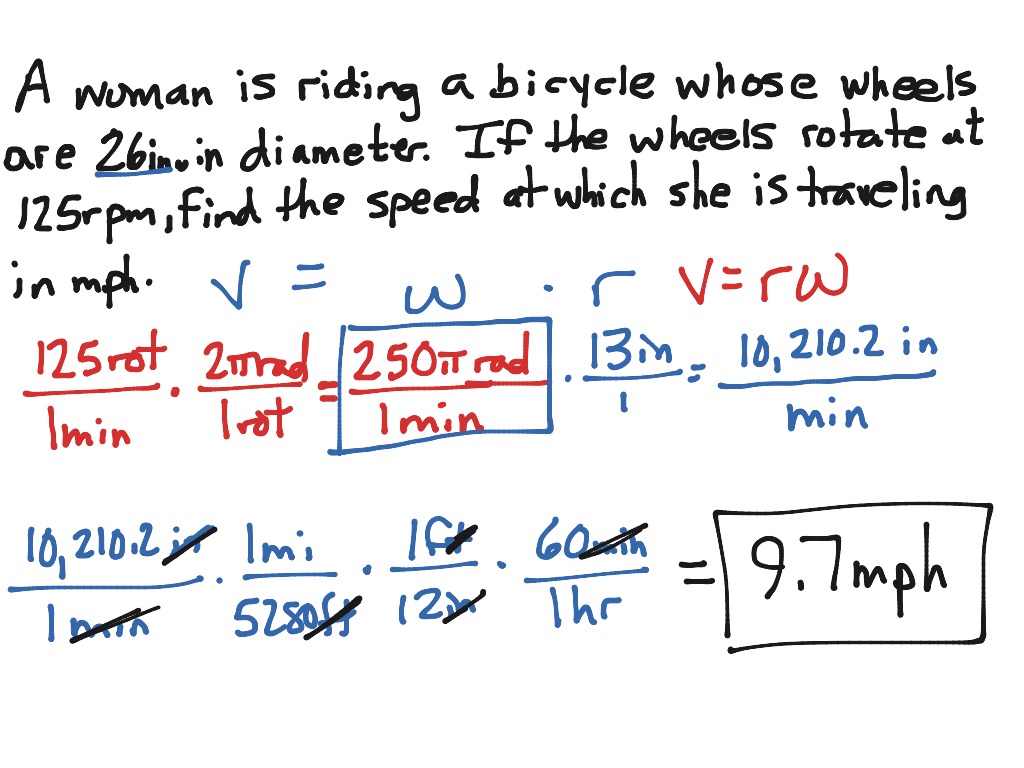 A woman is riding a bicycle whose wheels
are 26in. in diameter. If the wheels rotate at
125rpm, find the speed at which she is traveling
in mph. V = ω · r V = rω
125 rot / 1 min · 2π rad / 1 rot = 250π rad / 1 min · 13 in / 1 = 10,210.2 in / min
10,210.2 in / 1 min · 1 mi / 5280 ft · 1 ft / 12 in · 60 min / 1 hr = 9.7 mph